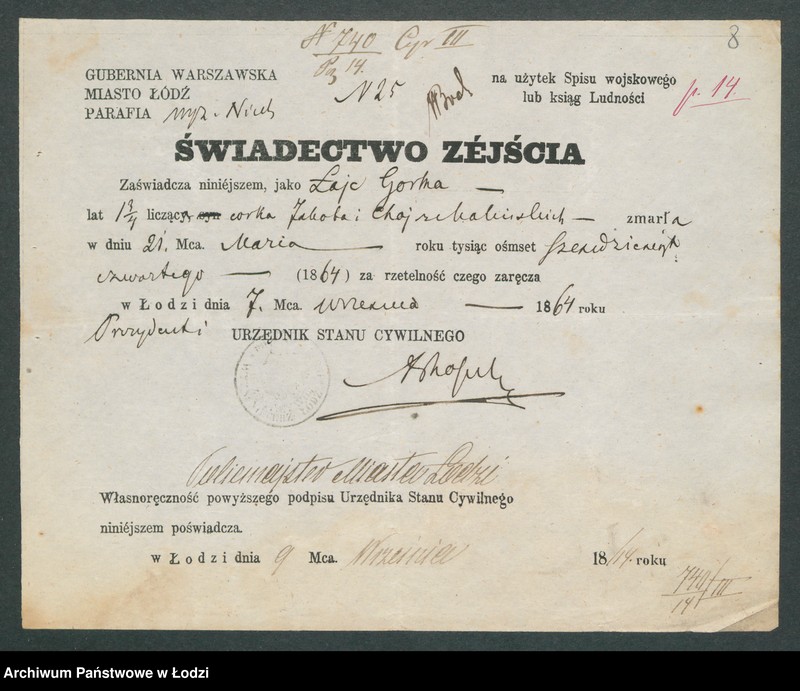 N 740 Cyr III
8
14.
GUBERNIA WARSZAWSKA
MIASTO ŁÓDŹ
PARAFIA wyz. Nieb
N 25
na użytek Spisu wojskowego
lub ksiąg Ludności
p. 14
ŚWIADECTWO ZÉJŚCIA
Zaświadcza niniéjszem, jako Łaje Gorka —
lat 1 3/4 licząca syn corka Jakoba i —zmarła
w dniu 21 Mca. Marca — roku tysiąc ośmset
czwartego — (1864) za rzetelność czego zaręcza
w Łodzi dnia 7. Mca. Września — 1864 roku
Prezydent i URZĘDNIK STANU CYWILNEGO
Policmajster Miasta Łodzi
Własnoręczność powyższego podpisu Urzędnika Stanu Cywilnego
niniéjszem poświadcza.
w Łodzi dnia 9 Mca. Września 18/64 roku
740/14 III
Archiwum Państwowe w Łodzi